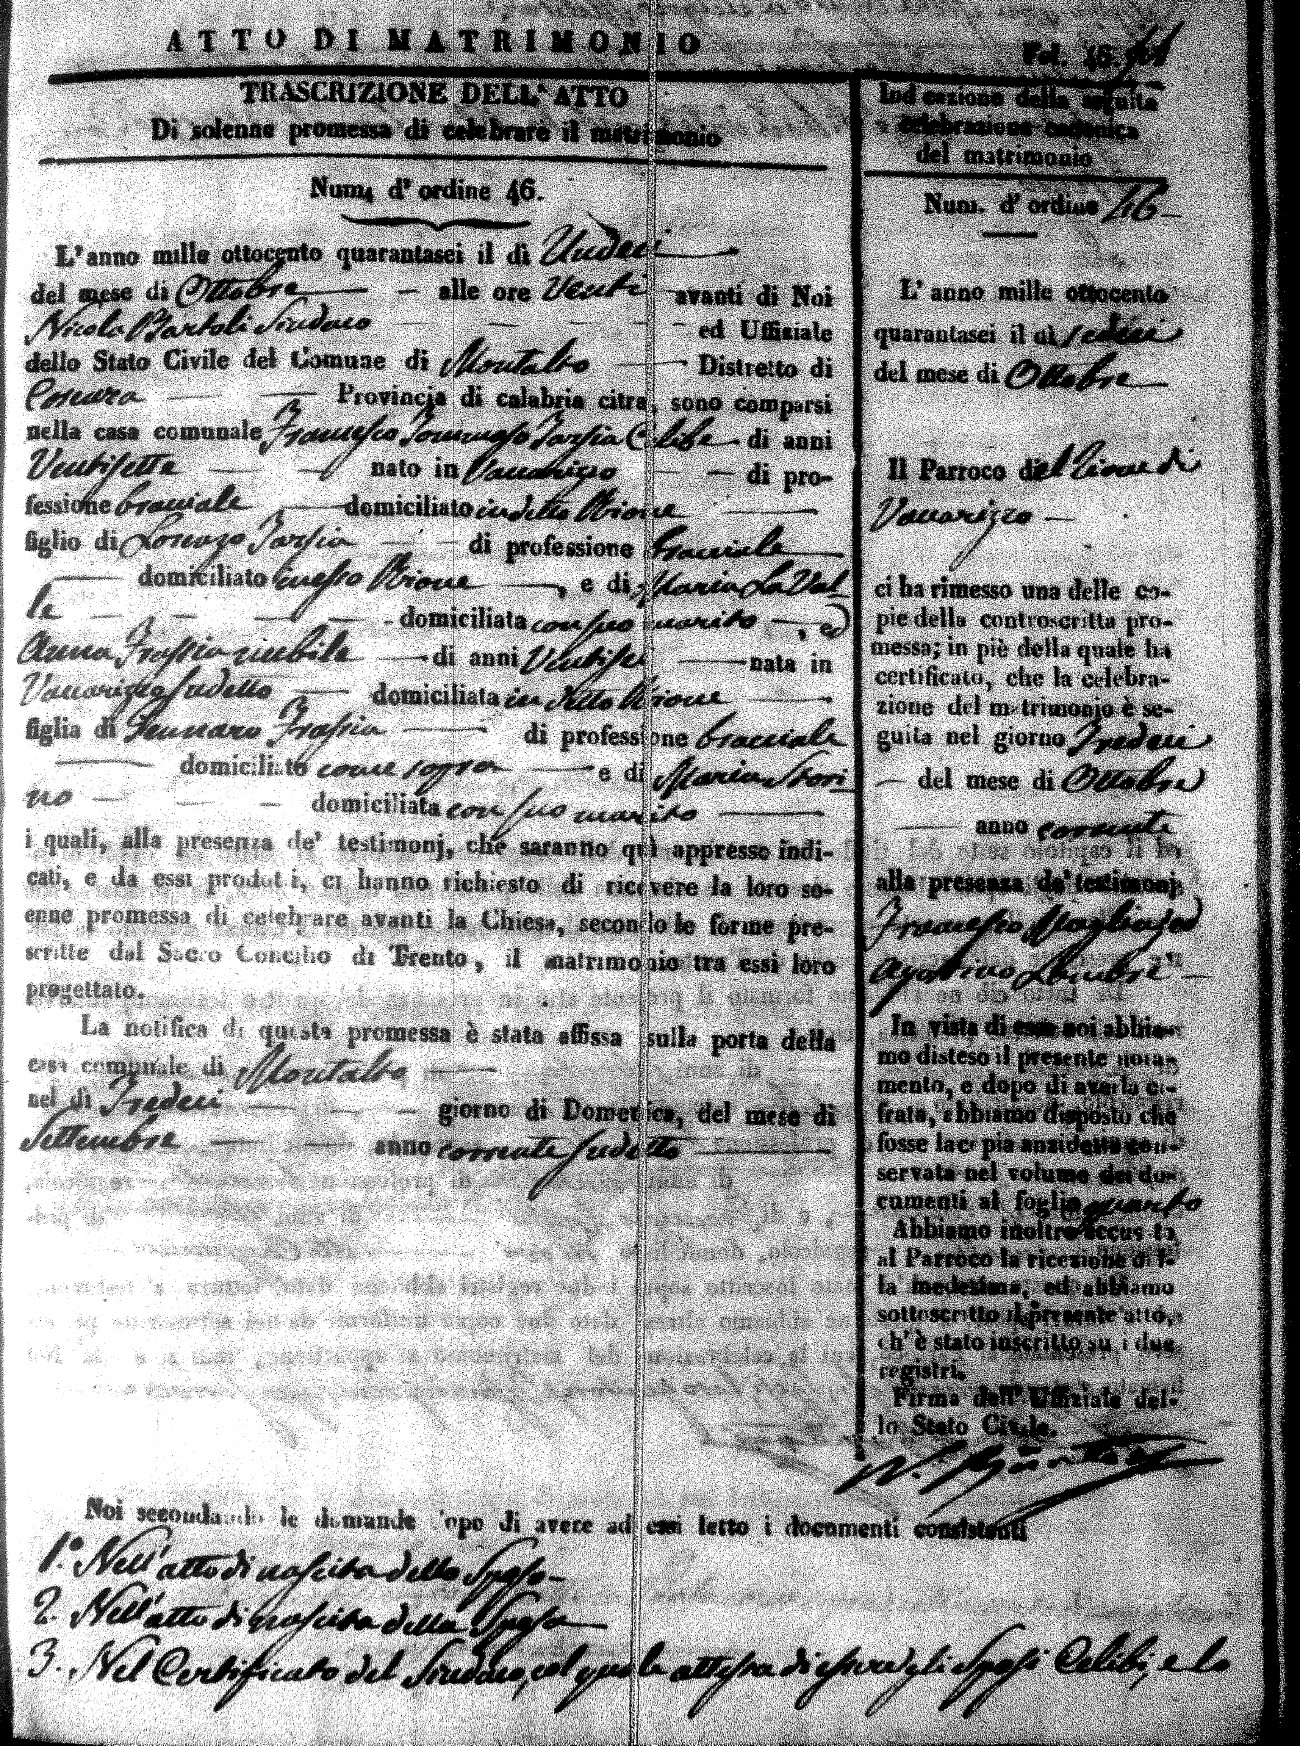 ATTO DI MATRIMONIO
Fol. 46.
TRASCRIZIONE DELL'ATTO
Di solenne promessa di celebrare il matrimonio
Num. d' ordine 46.
L'anno mille ottocento quarantasei il dì Undeci
del mese di Ottobre alle ore Venti avanti di Noi
Nicola Bartoli Sindaco ed Uffiziale
dello Stato Civile del Comune di Montalto Distretto di
Cosenza Provincia di calabria citra, sono comparsi
nella casa comunale Francesco Tommaso Tarsia Celibe di anni
Ventisette nato in Vaccarizzo di pro-
fessione bracciale domiciliato in detto Rione
figlio di Lorenzo Tarsia di professione bracciale
domiciliato in esso Rione, e di Maria La Val
le domiciliata con suo marito, ed
Anna Frassia nubile di anni nata in
Vaccarizzo sudetto domiciliata in detto Rione
figlia di Gennaro Frassia di professione bracciale
domiciliato come sopra e di Maria Stori
no domiciliata con suo marito
i quali, alla presenza de' testimonj, che saranno quì appresso indi-
cati, e da essi prodotti, ci hanno richiesto di ricevere la loro so-
enne promessa di celebrare avanti la Chiesa, secondo le forme pre-
scritte dal Sacro Concilio di Trento, il matrimonio tra essi loro
progettato.
La notifica di questa promessa è stata affissa sulla porta della
casa comunale di Montalto
nel dì Tredeci giorno di Domenica, del mese di
Settembre anno corrente sudetto
Indicazione della seguita
celebrazione canonica
del matrimonio
Num. d' ordine 46
L' anno mille ottocento
quarantasei il dì sedeci
del mese di Ottobre
Il Parroco del Rione di
Vaccarizzo
ci ha rimesso una delle co-
pie della controscritta pro-
messa; in piè della quale ha
certificato, che la celebra-
zione del matrimonio è se-
guita nel giorno Tredeci
del mese di Ottobre
anno corrente
alla presenza de' testimonj
Francesco
In vista di essa noi abbia-
mo disteso il presente notа-
mento, e dopo di averla ci-
frata, abbiamo disposto che
fosse la copia anzidetta con-
servata nel volume dei do-
cumenti al foglio quarto
Abbiamo inoltre accusata
al Parroco la ricezione di l-
la medesima, ed abbiamo
sottoscritto il presente atto,
ch' è stato inscritto su i due
registri.
Firma dell' Uffiziale del-
lo Stato Civile.
Noi secondando le domande dopo di avere ad essi letto i documenti consistenti
1.° Nell'atto di nascita dello Sposo
2. Nell'atto di nascita della Sposa
3. Nel Certificato del Sindaco, col quale attessa di essere gli Sposi Celibi, e lo